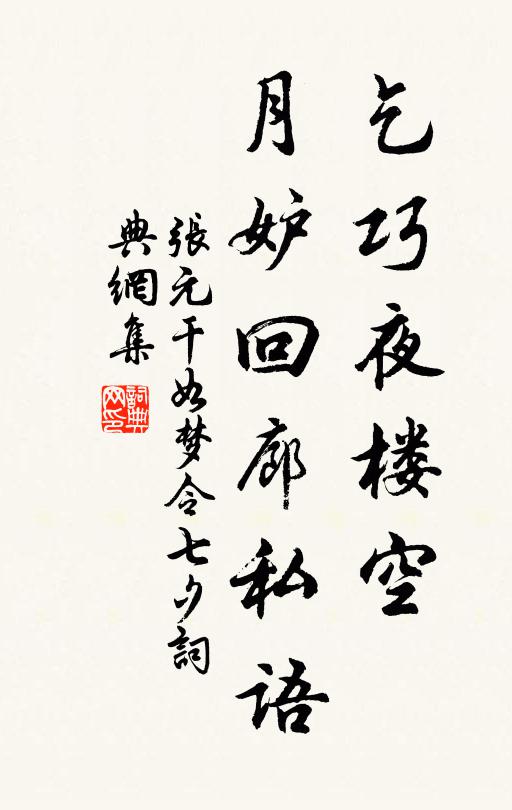 乞巧夜楼空
月妒回廊私语
張元干如梦令七夕詞
典網集
詞典网印